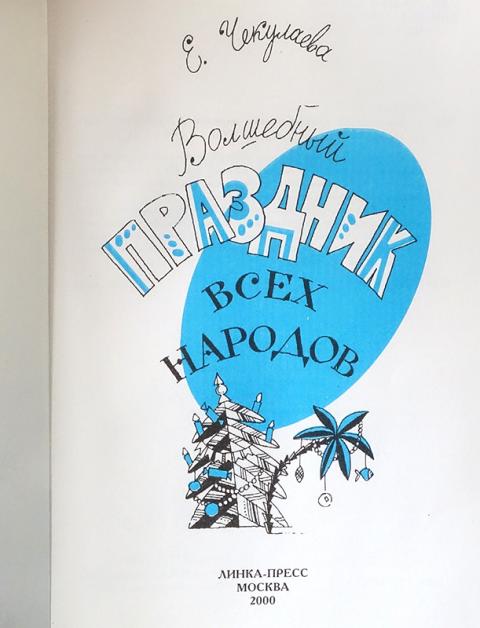 Е. Чекулаева
Волшебный
ПРАЗДНИК
ВСЕХ
НАРОДОВ
ЛИНКА-ПРЕСС
МОСКВА
2000